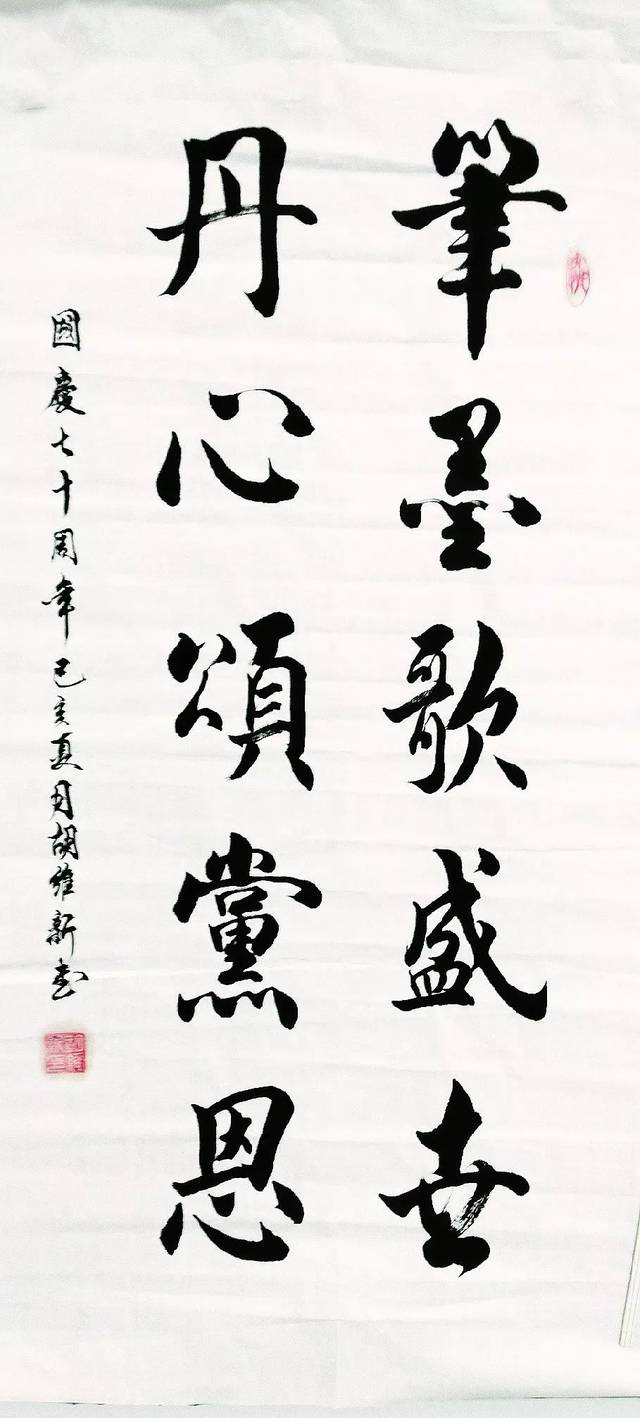 筆墨歌盛世
丹心頌黨恩
國慶七十周年己亥夏月胡維新書